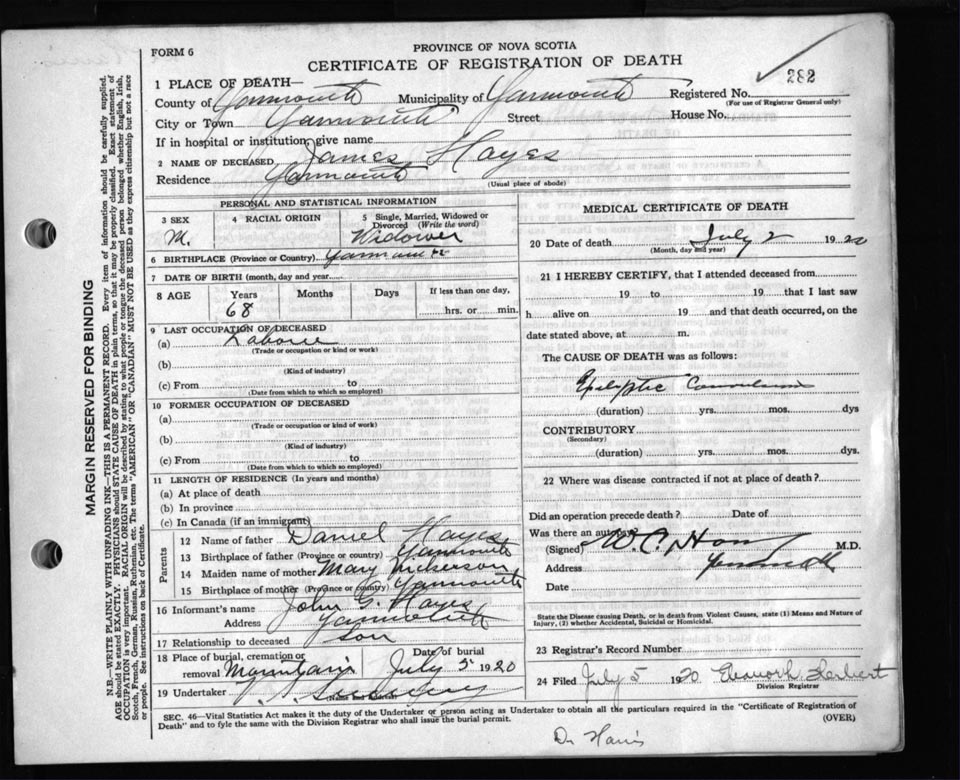 FORM 6
PROVINCE OF NOVA SCOTIA
CERTIFICATE OF REGISTRATION OF DEATH
282
1 PLACE OF DEATH—
County of Yarmouth Municipality of Yarmouth Registered No.
(For use of Registrar General only)
City or Town Yarmouth Street House No.
If in hospital or institution, give name
2 NAME OF DECEASED James Hayes
Residence Yarmouth
(Usual place of abode)
PERSONAL AND STATISTICAL INFORMATION
3 SEX
M.
4 RACIAL ORIGIN
5 Single, Married, Widowed or Divorced (Write the word)
Widower
6 BIRTHPLACE (Province or Country) Yarmouth
7 DATE OF BIRTH (month, day and year)
8 AGE Years Months Days If less than one day,
68 hrs. or min.
9 LAST OCCUPATION OF DECEASED
(a) Laborer
(Trade or occupation or kind of work)
(b)
(Kind of industry)
(c) From to
(Date from which to which so employed)
10 FORMER OCCUPATION OF DECEASED
(a)
(Trade or occupation or kind of work)
(b)
(Kind of industry)
(c) From to
(Date from which to which so employed)
11 LENGTH OF RESIDENCE (In years and months)
(a) At place of death
(b) In province
(c) In Canada (if an immigrant)
Parents
12 Name of father Daniel Hayes
13 Birthplace of father (Province or country) Yarmouth
14 Maiden name of mother Mary Nickerson
15 Birthplace of mother (Province or country) Yarmouth
16 Informant's name John G. Hayes
Address Yarmouth
17 Relationship to deceased son
18 Place of burial, cremation or removal Mountain
Date of burial
July 5 1920
19 Undertaker
MEDICAL CERTIFICATE OF DEATH
20 Date of death July 2 1920
(Month, day and year)
21 I HEREBY CERTIFY, that I attended deceased from
19 to 19 that I last saw
h alive on 19 and that death occurred, on
date stated above, at m.
The CAUSE OF DEATH was as follows:
Epileptic Convulsions
(duration) yrs. mos. dys
CONTRIBUTORY
(Secondary)
(duration) yrs. mos. dys.
22 Where was disease contracted if not at place of death?
Did an operation precede death? Date of
Was there an autopsy
(Signed) M.D.
Address Yarmouth
Date
State the Disease causing Death, or in death from Violent Causes, state (1) Means and Nature of
Injury, (2) whether Accidental, Suicidal or Homicidal.
23 Registrar's Record Number
24 Filed July 5 1920 Herbert
Division Registrar
SEC. 46—Vital Statistics Act makes it the duty of the Undertaker or person acting as Undertaker to obtain all the particulars required in the "Certificate of Registration of
Death" and to fyle the same with the Division Registrar who shall issue the burial permit. (OVER)
Dr Harris
MARGIN RESERVED FOR BINDING
N.B.—WRITE PLAINLY WITH UNFADING INK—THIS IS A PERMANENT RECORD. Every item of information should be carefully supplied.
AGE should be stated EXACTLY. PHYSICIANS should STATE CAUSE OF DEATH in plain terms, so that it may be properly classified. Exact statement of
OCCUPATION is very important. RACIAL ORIGIN will be described by stating to what people or tongue the deceased person belonged whether English, Irish,
Scotch, French, German, Russian, Ruthenian, etc. The terms "AMERICAN" OR "CANADIAN" MUST NOT BE USED as they express citizenship but not a race
or people. See instructions on back of Certificate.